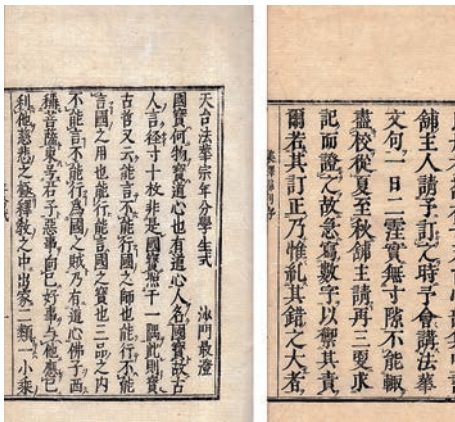 舖主人請予訂之時予會講法華
文句一日二座實無寸隙不能輙
盡校從夏至秋舖主請再三要求
記而證之故急寫數字以禦其責
爾若其訂正乃惟糺其錯之大者
天台法華宗年分學生式 沙門最澄
國寶何物寶道心也有道心人名國寶故古
人言径寸十枚非是國寶照千一隅此則寶
古哲又云能言不能行國之師也能行不能
言國之用也能行能言國之寶也三品之内
不能言不能行爲國之賊乃有道心佛子西
稱菩薩東号君子惡事向己好事与他忘己
利他慈悲之極釋教之中出家二類一小乘